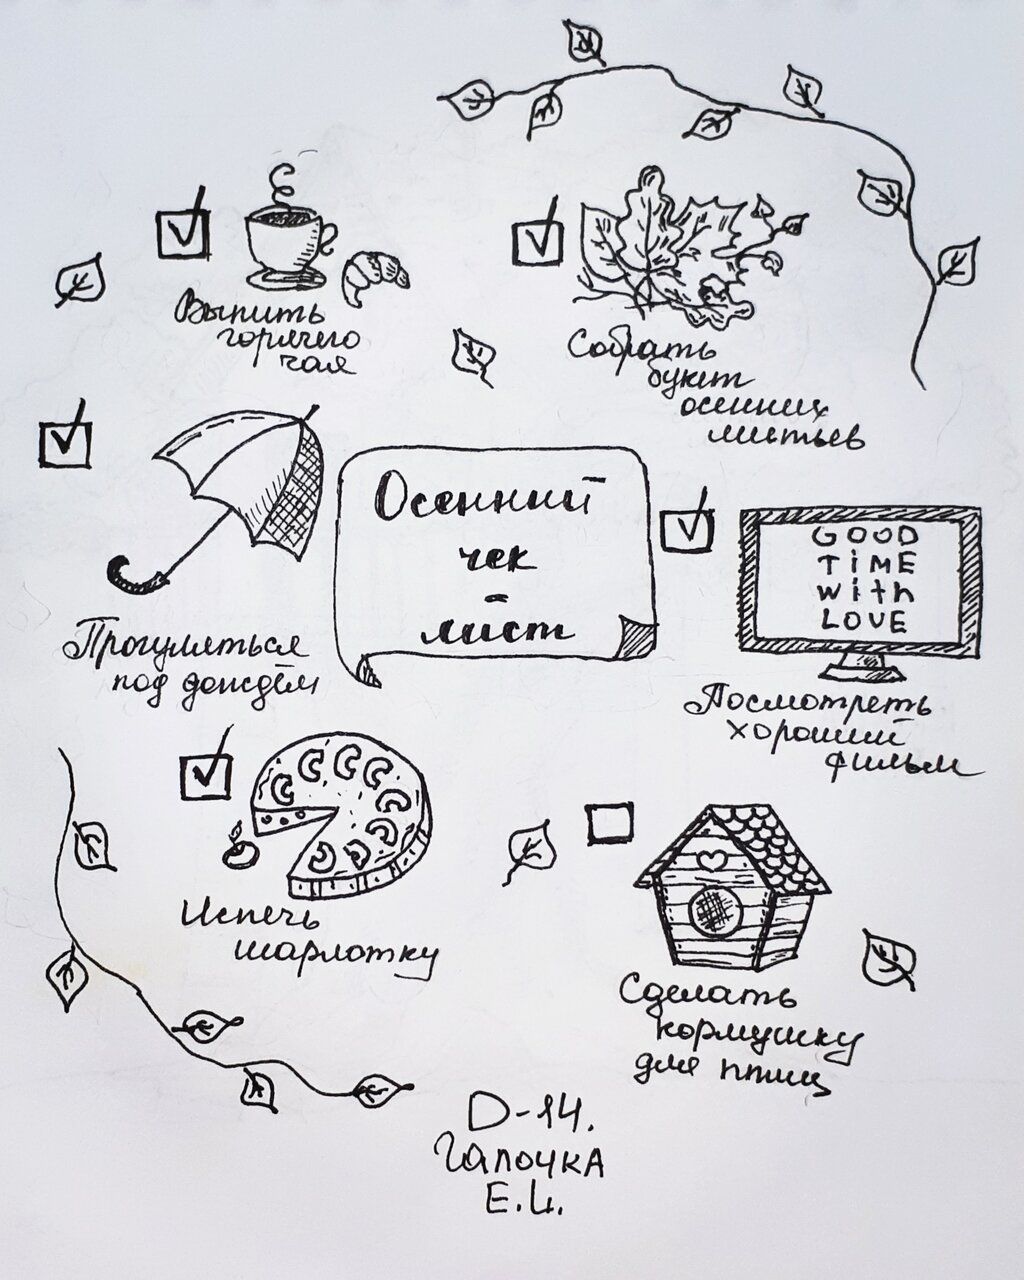 Выпить
горячего
чая
Собрать
букет
осенних
листьев
Осенний
чек
-
лист
GOOD
TiME
with
LOVE
Прогуляться
под дождём
Посмотреть
хороший
фильм
Испечь
шарлотку
Сделать
кормушку
для птиц
D-14.
Галочка
Е.И.